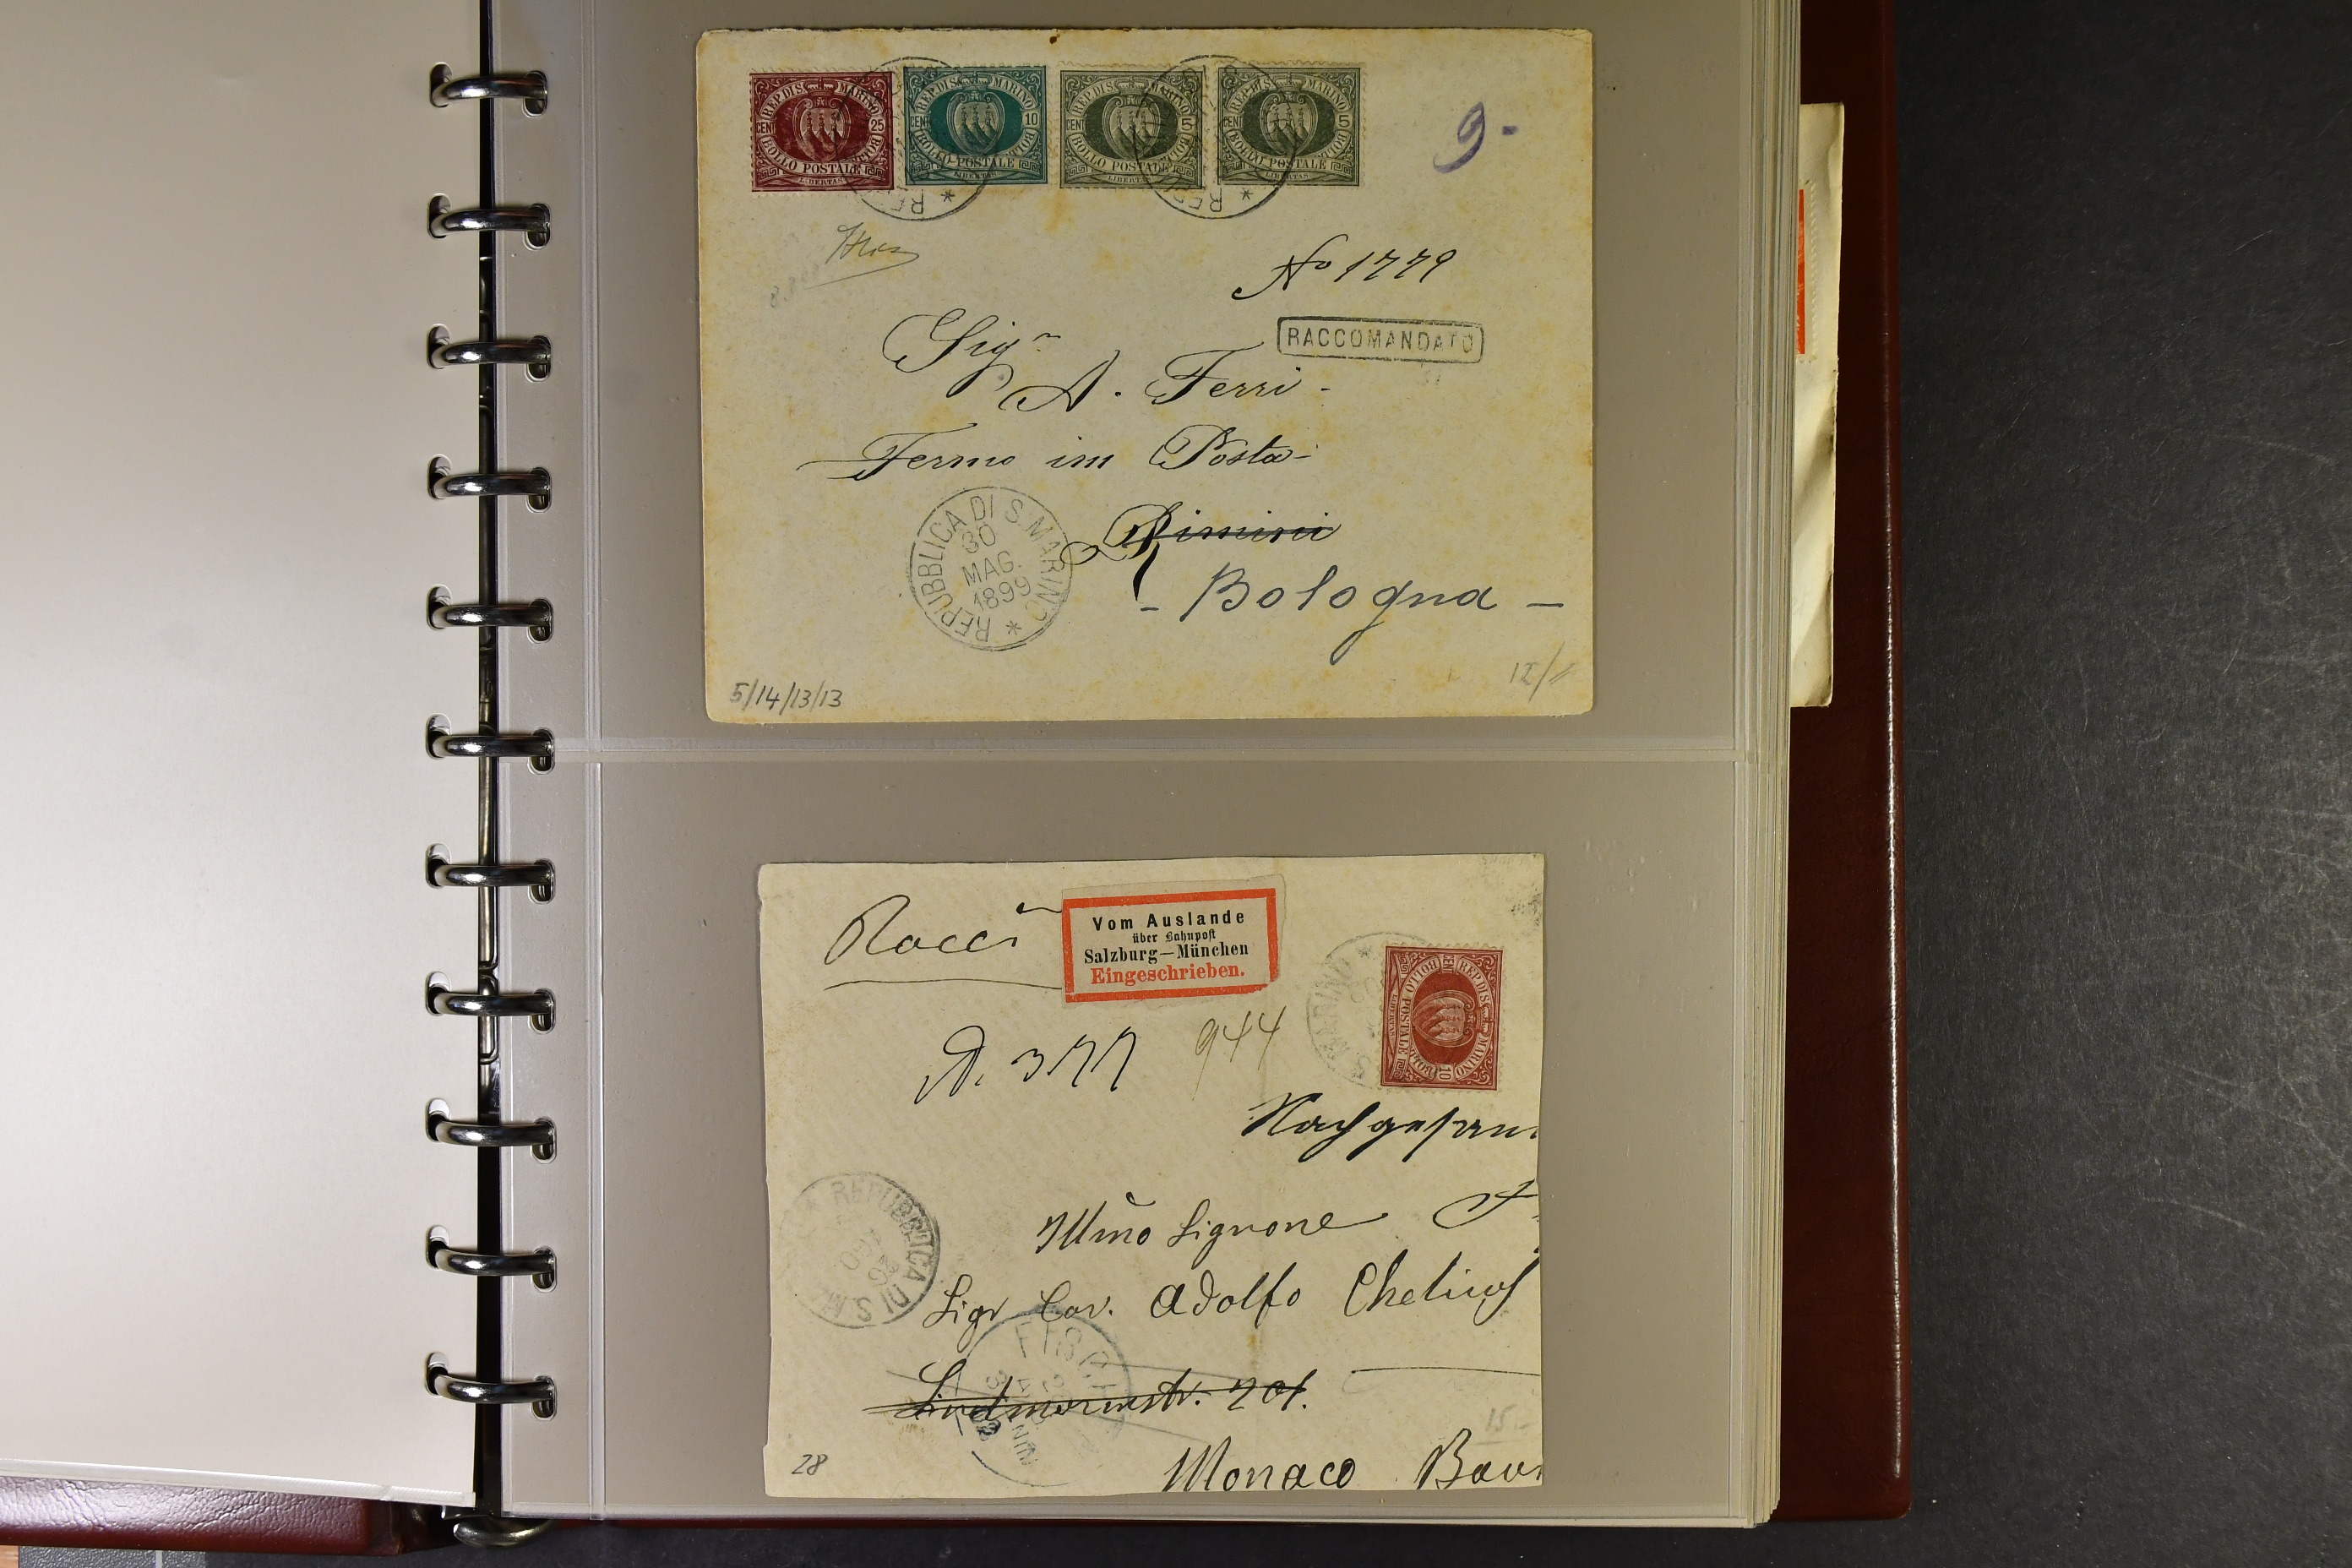 REP. DI S. MARINO
CENT 25
BOLLO POSTALE
LIBERTAS
REP. DI S. MARINO
CENT 10
BOLLO POSTALE
LIBERTAS
REP. DI S. MARINO
CENT 5
BOLLO POSTALE
LIBERTAS
REP. DI S. MARINO
CENT 5
BOLLO POSTALE
LIBERTAS
9-
No 1779
RACCOMANDATO
Sigr
A. Ferri
Fermo im Posta
Rimini
- Bologna -
REPUBBLICA DI S. MARINO
30
MAG.
1899
5/14/13/13
Vom Auslande
über Bahnpost
Salzburg—München
Eingeschrieben.
REP. DI S. MARINO
CENT 10
BOLLO POSTALE
MARINO
A. 377
944
REPUBBLICA DI S. M
26
Sigr Cav. Adolfo
Monaco
15.-
28